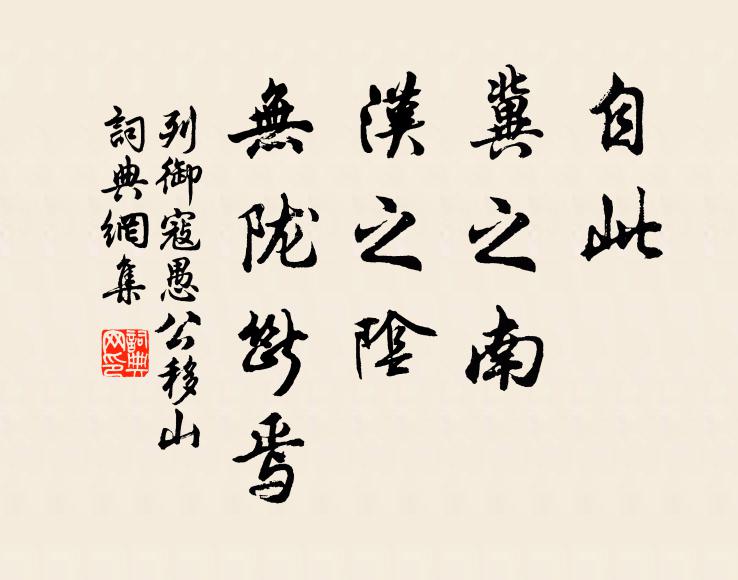 自此
冀之南
漢之陰
無陇斷焉
列御寇愚公移山
詞典網集
詞典网印